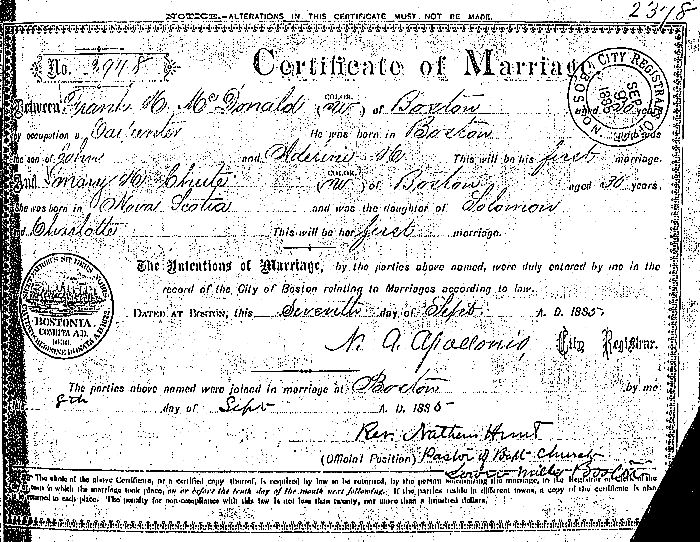 2378
NOTICE.—ALTERATIONS IN THIS CERTIFICATE MUST NOT BE MADE.
No. 2948
Certificate of Marriage
CITY REGISTRAR BOSTON SEP 1885
COLOR.
Between Frank H. McDonald (W) of Boston aged years,
by occupation a Carpenter He was born in Boston and was
the son of John and Adeline H This will be his first marriage.
COLOR.
And Mary H Chute (W) of Boston, aged 30 years,
She was born in Nova Scotia and was the daughter of Solomon
and Charlotte This will be her first marriage.
The Intentions of Marriage, by the parties above named, were duly entered by me in the
record of the City of Boston relating to Marriages according to law.
DATED AT BOSTON, this Seventh day of Sept A. D. 1885
BOSTONIA.
CONDITA A.D.
1630.
N. A. Apollonio, City Registrar.
The parties above named were joined in marriage at Boston by me
8th day of Sept A. D. 1885
Rev. Nathan Hunt
(Official Position) Pastor of Bapt Church
Boston
The whole of the above Certificate, or a certified copy thereof, is required by law to be returned, by the person solemnizing the marriage, to the Registrar or Clerk of the
town in which the marriage took place, on or before the tenth day of the month next following. If the parties reside in different towns, a copy of the certificate is also
returned to each place. The penalty for non-compliance with this law is not less than twenty, nor more than a hundred dollars.